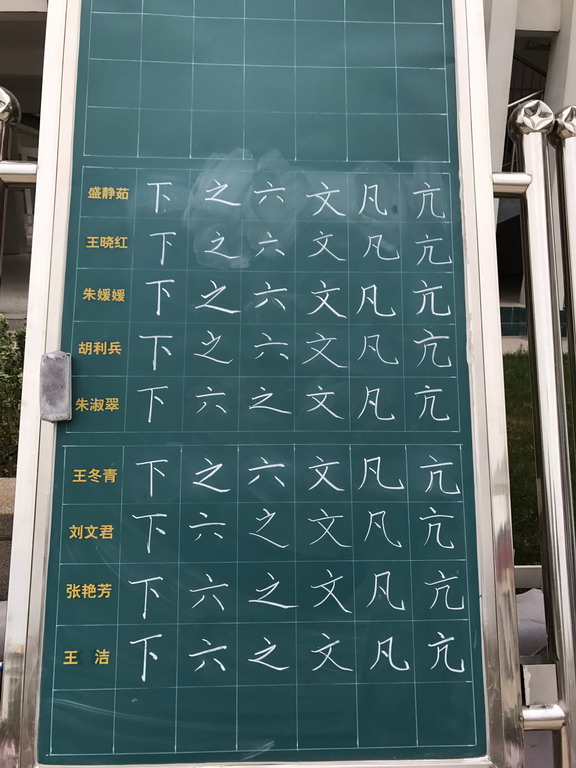 盛静茹 下 之 六 文 凡 亢
王晓红 下 之 六 文 凡 亢
朱媛媛 下 之 六 文 凡 亢
胡利兵 下 之 六 文 凡 亢
朱淑翠 下 六 之 文 凡 亢
王冬青 下 之 六 文 凡 亢
刘文君 下 六 之 文 凡 亢
张艳芳 下 六 之 文 凡 亢
王 洁 下 六 之 文 凡 亢